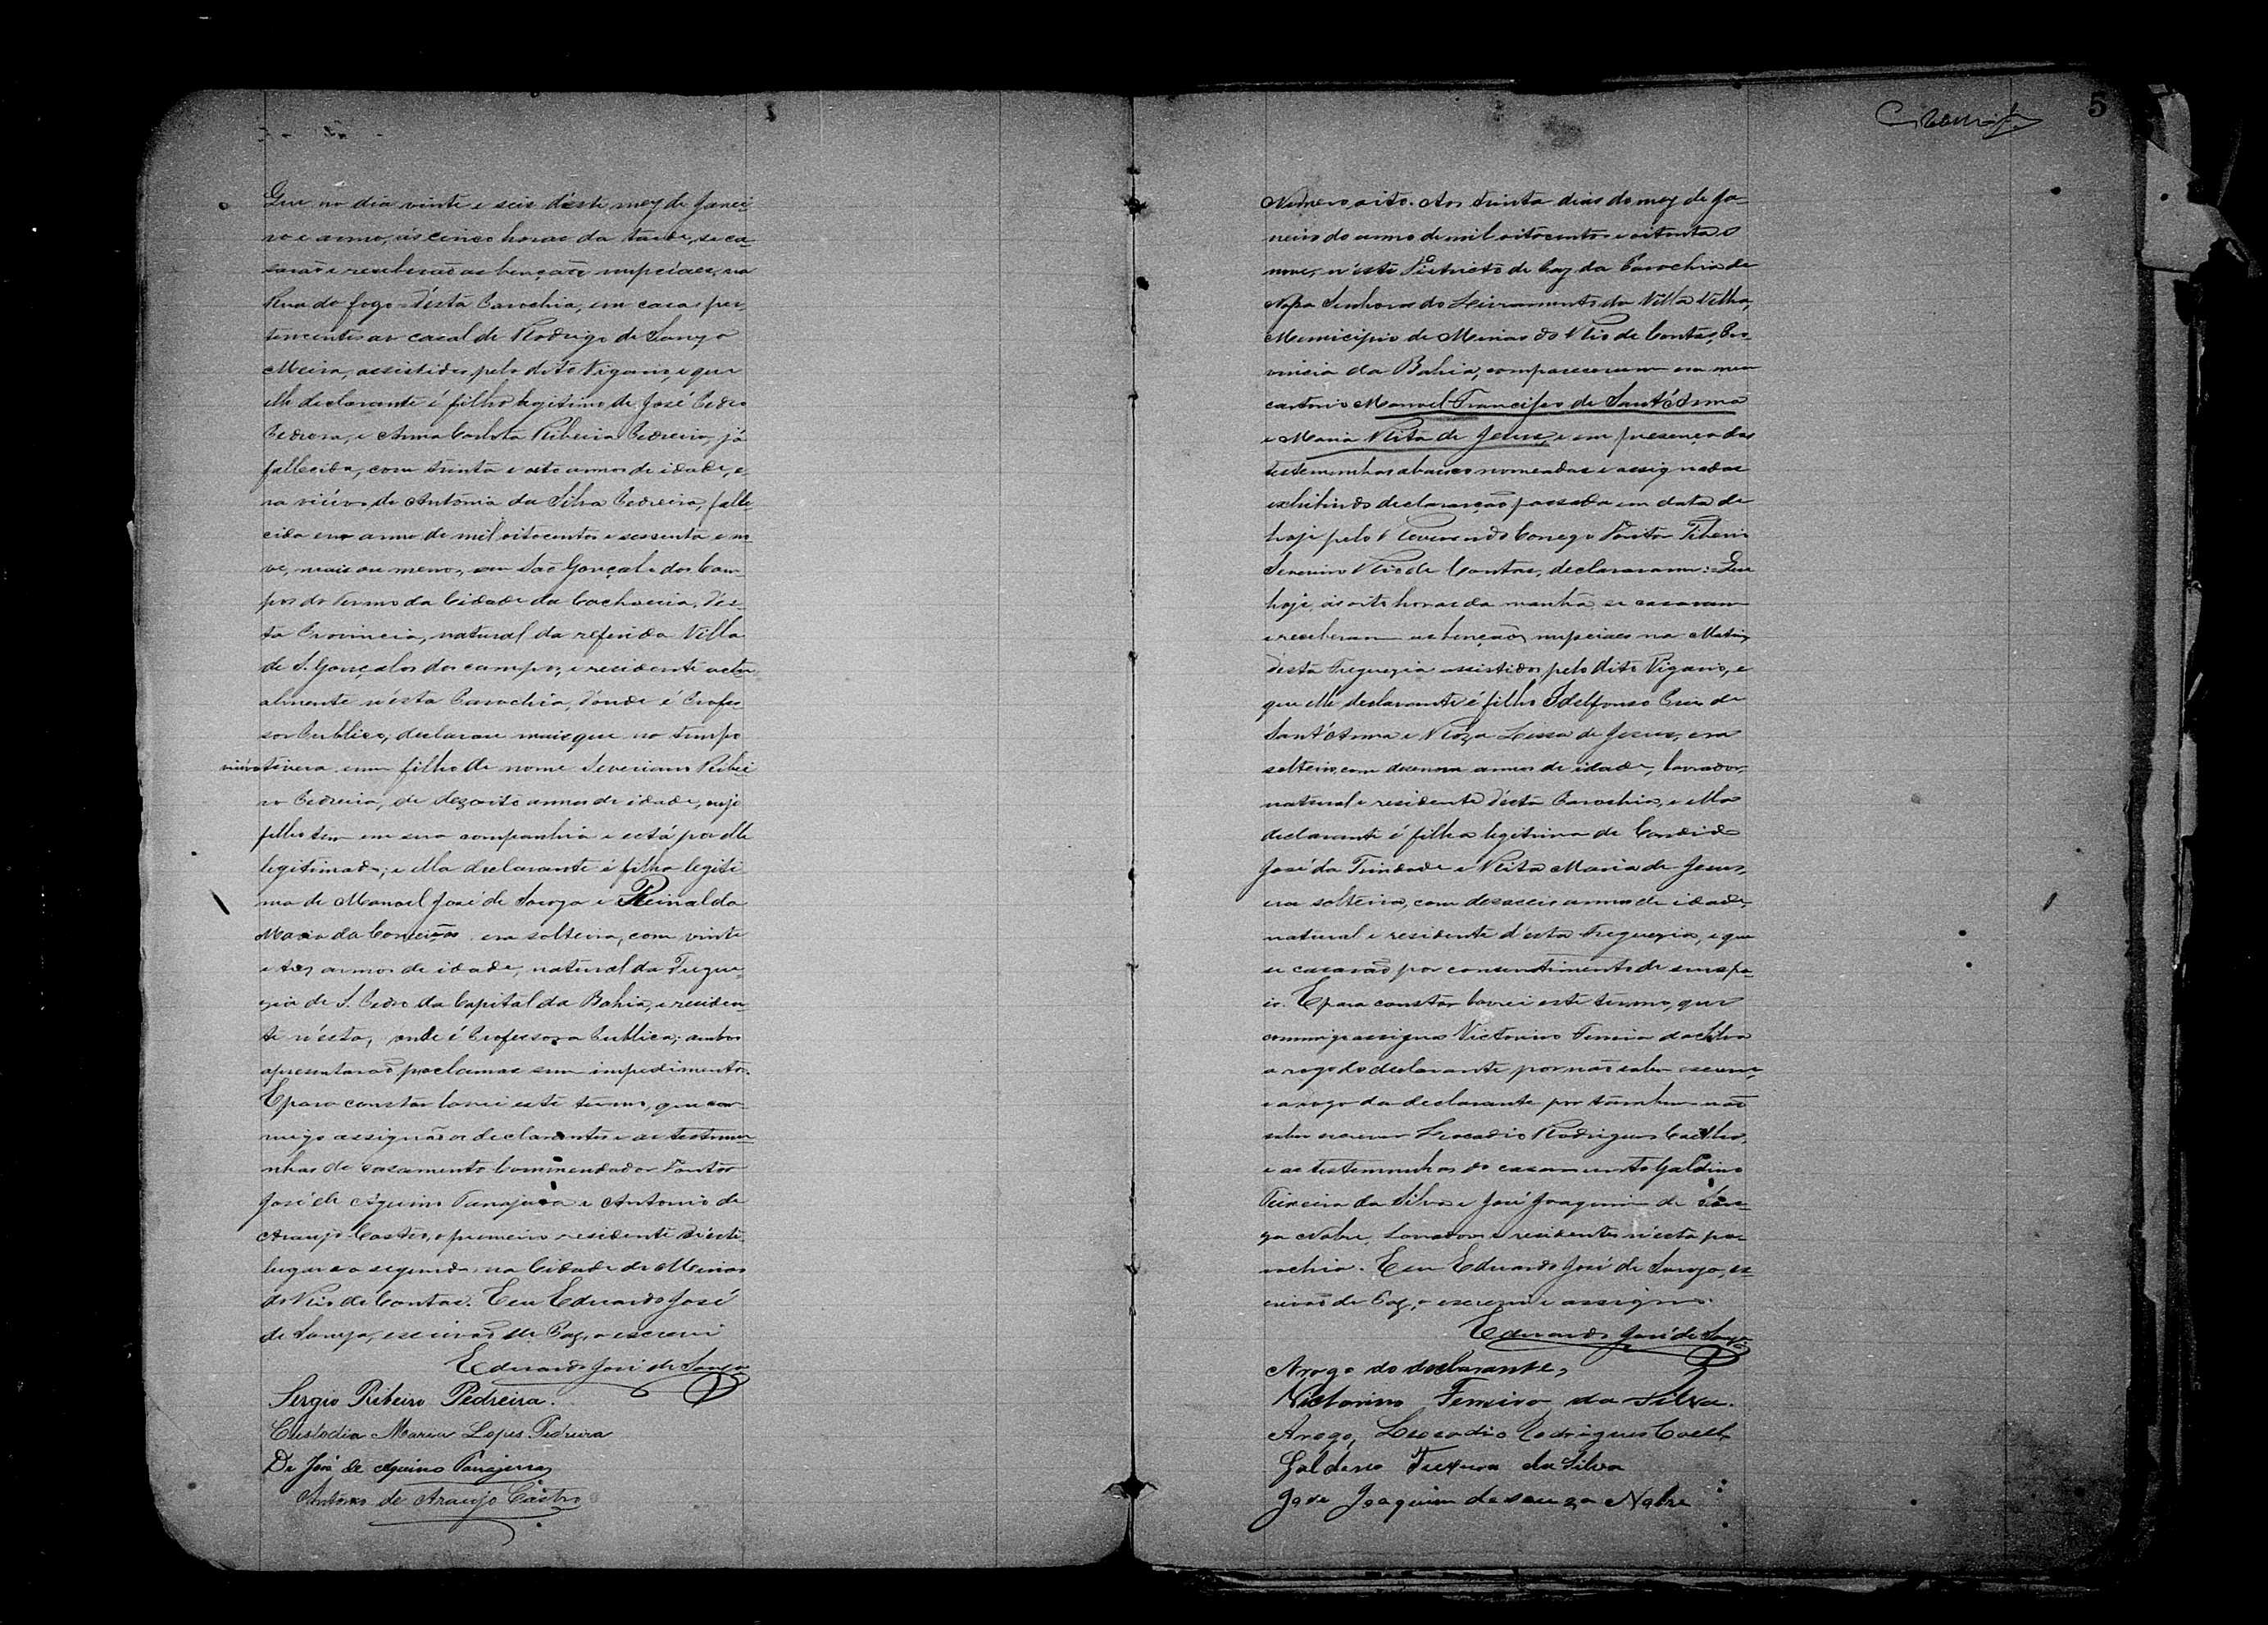 Que no dia vinte e seis d'este mez de Janei-
ro e anno, ás cinco horas da tarde, se ca-
sarão e receberão as bençãos nupciaes, na
Rua do fogo d'esta Parochia, em casa per-
tencentes ao casal de Rodrigo de Souza
Meira, assistidos pelo dito Vigario, e que
elle declarante é filho legitimo de José Pedro
Pedreira, e Anna Carlota Ribeiro Pedreira, já
fallecida, com trinta e oito annos de idade, e-
ra viúvo de Antonia da Silva Pedreira, falle-
cida em anno de mil oitocentos e sessenta e no-
ve, mais ou menos, em São Gonçalo dos Cam-
pos do Termo da Cidade da Cachoeira, d'es-
ta Provincia, natural da referida Villa
de S. Gonçalos dos campos, e residente actu-
almente n'esta Parochia, d'onde é Profes-
sor Publico, declarou mais que no tempo
viúvo tivera um filho de nome Severiano Ribei-
ro Pedreira, de dezoito annos de idade, cujo
filho tem em sua companhia e está por elle
legitimado; e ella declarante é filha legiti-
ma de Manoel José de Souza e Reinalda
Maria da Conceição era solteira, com vinte
e tres annos de idade, natural da Fregue-
zia de S. Pedro da Capital da Bahia, e residen-
te n'esta, onde é Professora Publica; ambos
apresentarão proclamas sem impedimento.
E para constar lavrei este termo, que com-
migo assignão os declarantes e as testemu-
nhas de casamento Commendador Doutor
José de Aquino Tanajura e Antonio de
Araujo Castro, o primeiro residente d'este
lugar e o segundo na Cidade de Minas
do Rio de Contas. E eu Eduardo José
de Souza, escrivão de Paz, o escrevi
Eduardo José de Souza
Sergio Ribeiro Pedreira.
Custodia Maria Lopes Pedreira
Dr José de Aquino Tanajura
Antonio de Araujo Castro
5
Numero oito. Aos trinta dias do mez de Ja-
neiro do anno de mil oitocentos e oitenta e
nove, n'este Districto de Paz da Parochia de
Nossa Senhora do Livramento da Villa Velha,
Municipio de Minas do Rio de Contas, Pro-
vincia da Bahia, compareceram em meu
cartorio Manoel Francisco de Sant'Anna
e Maria Rita de Jesus, e em presença das
testemunhas abaixo nomeadas e assignadas
exhibindo declaração passada em data de
hoje pelo Reverendo Conego Doutor Tiberio
Severino Rio de Contas, declararam: Que
hoje, ás oito horas da manhã, se casaram
e receberam as bençãos nupciaes na Matriz
desta Freguezia assistidos pelo dito Vigario, e
que elle declarante é filho Idelfonso de
Sant'Anna e Roza Lessa de Jesus, era
solteiro, com desenove annos de idade, lavrador,
natural e residente d'esta Parochia, e ella
declarante é filha legitima de Candido
José da Trindade e Rita Maria de Jesus,
era solteira, com desaceis annos de idade,
natural e residente d'esta Freguezia, e que
se casarão por consentimento de seus pa-
es. E para constar lavrei este termo, que
commigo assigna Victorino Ferreira da Silva
a rogo do declarante por não saber escrever,
e a rogo da declarante por tambem não
saber escrever Leocadio Rodrigues Coelho,
e as testemunhas do casamento Galdino
Teixeira da Silva e José Joaquim de Sou-
za Nobre, lavradores e residentes n'esta pa-
rochia. E eu Eduardo José de Souza, es-
crivão de Paz, o escrevi e assigno.
Eduardo José de Souza
Arogo do declarante,
Victorino Ferreira da Silva.
Arogo, Leocadio Rodrigues Coelho
Galdino Teixeira da Silva
Jose Joaquim de souza Nobre